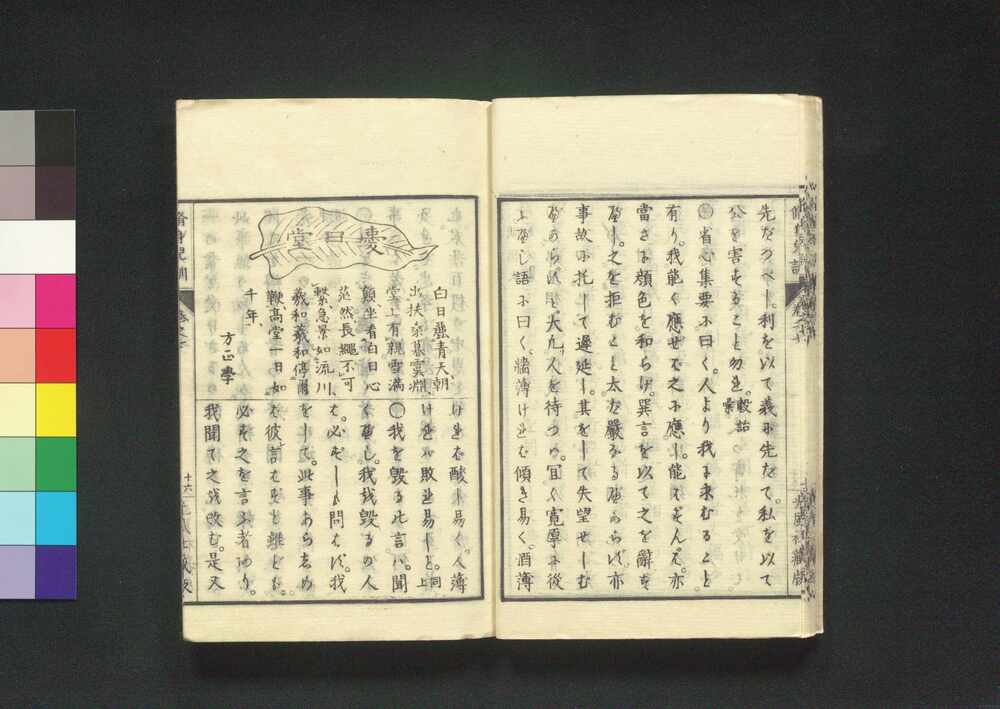 先だつべし。利を以て義に先だて。私を以て
公を害することを勿れ。 彀詒彙
○省心集要に曰く。人より我に求むること
有り。我能く應せば之に應し。能はずんば。亦
當さに顔色を和らげ。巽言を以て之を辭す
べし。之を拒むこと太だ嚴なるべからず。亦
事故に托して遲延し。其をして失望せしむ
べからず。大凡人を待つ。宜く寛厚に從
ふべし語に曰く。牆薄ければ傾き易く。酒薄
愛日堂
白日麗青天、朝
出扶桑暮虞淵、
堂上有親雪滿
顛、坐看白日心
茫然長繩不可
繫、急景如流川、
羲和羲和停爾
鞭、高堂一日如
千年、
方正學
ければ酸し易く。人薄
ければ敗れ易しと。同上
○我を毀る此言ハ。聞
くべし。我を毀るの人
ハ。必ずしも問はず。我
をして。此事あらしめ
ば彼言はずと雖ども。
必ず之を言ふ者あり。
我聞て之を改む。是又
脩身児訓
十六